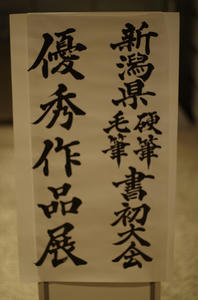 新潟県硬筆毛筆書初大会
優秀作品展